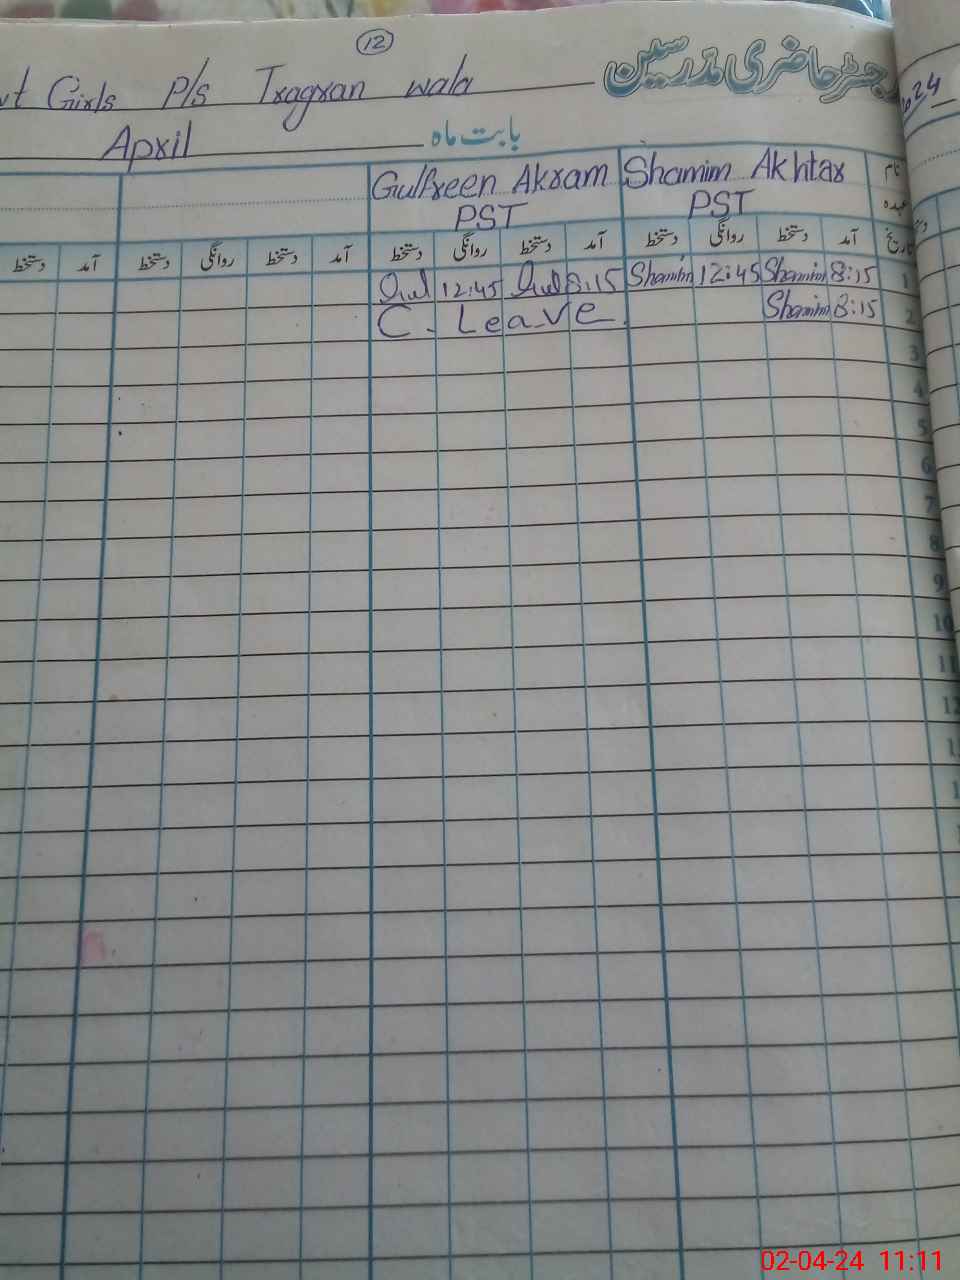 12
Girls P/s Tragran wala رجسٹر حاضری مدرسین
2024
April بابت ماہ
Gulfreen Akram Shamim Akhtar نام
PST PST عہدہ
دستخط آمد دستخط روانگی دستخط آمد دستخط روانگی دستخط آمد دستخط روانگی دستخط آمد تاریخ
Gul 12:45 Gul 8:15 Shamim 12:45 Shamim 8:15 1
C. Leave Shamim 8:15 2
3
4
5
6
7
8
9
10
11
12
02-04-24 11:11